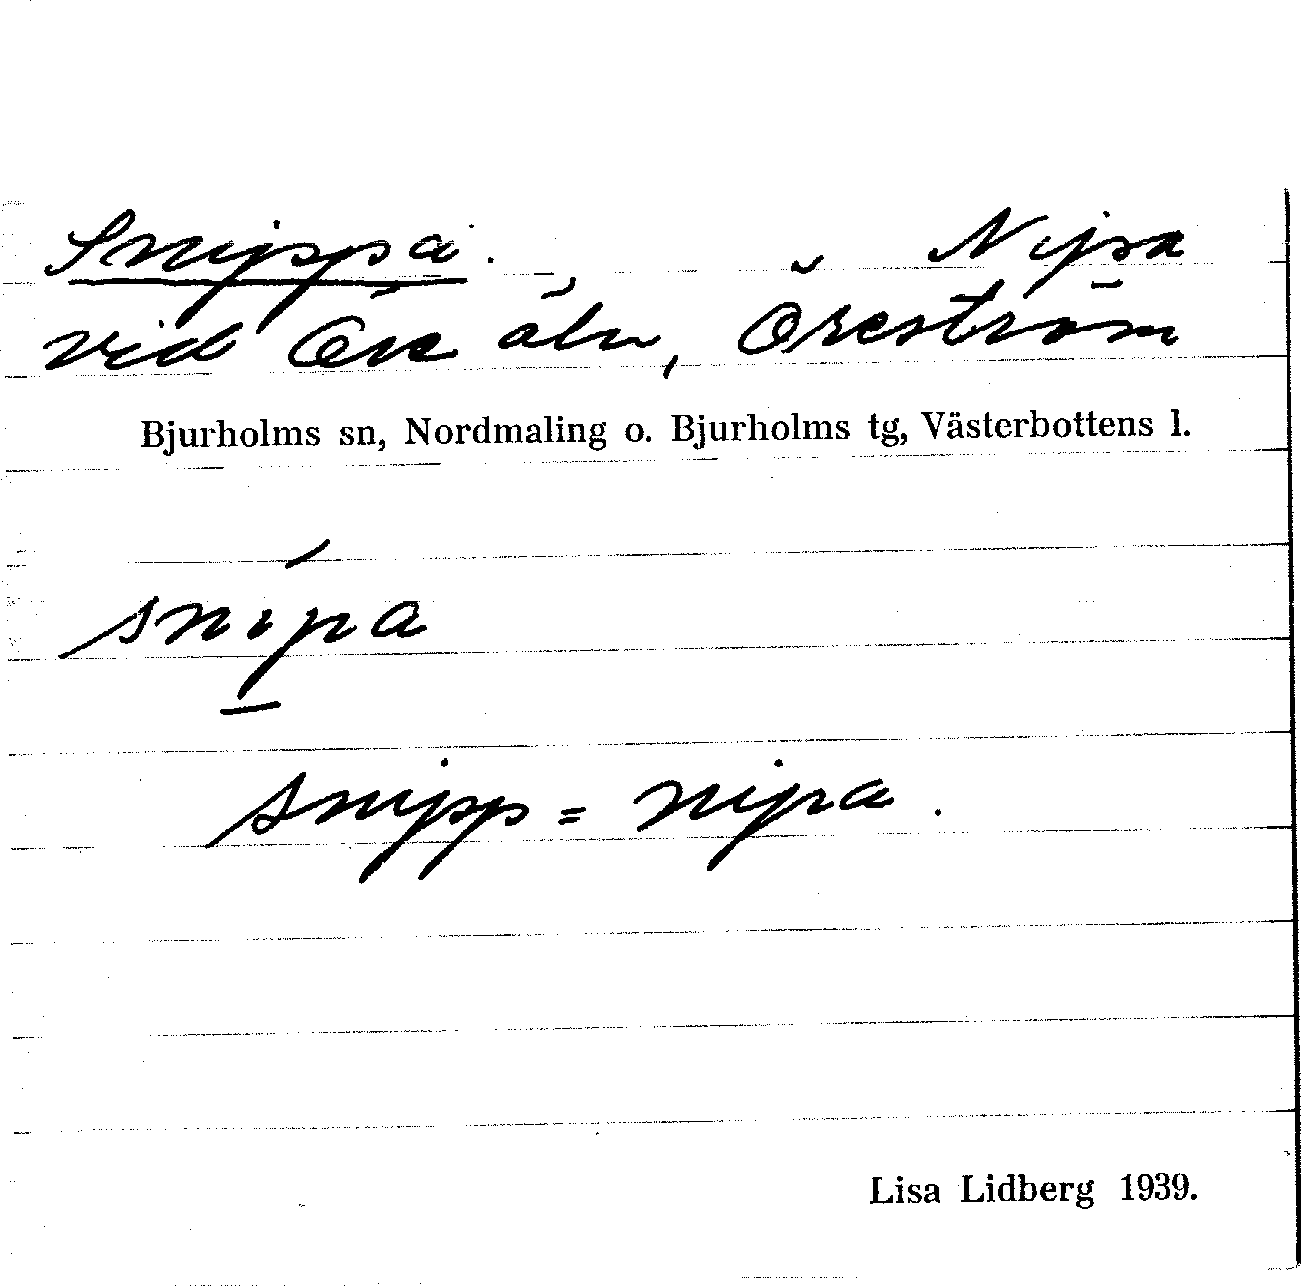 Snippa. Nipa
vid Öre älv, Öreström
Bjurholms sn, Nordmaling o. Bjurholms tg, Västerbottens l.
snípa
snipp = nipa.
Lisa Lidberg 1939.